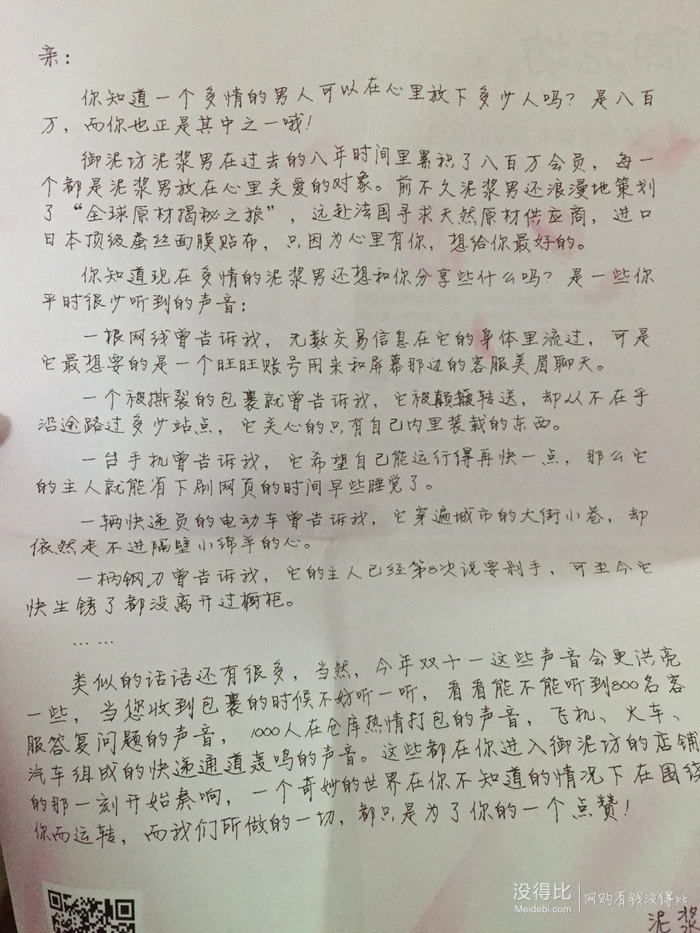 亲：
你知道一个多情的男人可以在心里放下多少人吗？是八百
万，而你也正是其中之一哦！
御泥坊泥浆男在过去的八年时间里累积了八百万会员，每一
个都是泥浆男放在心里关爱的对象。前不久泥浆男还浪漫地策划
了“全球原材揭秘之旅”，远赴法国寻求天然原材供应商，进口
日本顶级蚕丝面膜贴布，只因为心里有你，想给你最好的。
你知道现在多情的泥浆男还想和你分享些什么吗？是一些你
平时很少听到的声音：
一根网线曾告诉我，无数交易信息在它的身体里流过，可是
它最想要的是一个旺旺账号用来和屏幕那边的客服美眉聊天。
一个被撕裂的包裹就曾告诉我，它被颠簸转送，却从不在乎
沿途路过多少站点，它关心的只有自己内里装载的东西。
一台手机曾告诉我，它希望自己能运行得再快一点，那么它
的主人就能省下刷网页的时间早些睡觉了。
一辆快递员的电动车曾告诉我，它穿遍城市的大街小巷，却
依然走不进隔壁小绵羊的心。
一柄钢刀曾告诉我，它的主人已经第8次说要剁手，可至今它
快生锈了都没离开过橱柜。
……
类似的话语还有很多，当然，今年双十一这些声音会更洪亮
一些，当您收到包裹的时候不妨听一听，看看能不能听到800名客
服答复问题的声音，1000人在仓库热情打包的声音，飞机、火车、
汽车组成的快递通道轰鸣的声音。这些都在你进入御泥坊的店铺
的那一刻开始奏响，一个奇妙的世界在你不知道的情况下在围绕
你而运转，而我们所做的一切，都只是为了你的一个点赞！
没得比 网购有钱没得比
Meidebi.com
泥浆